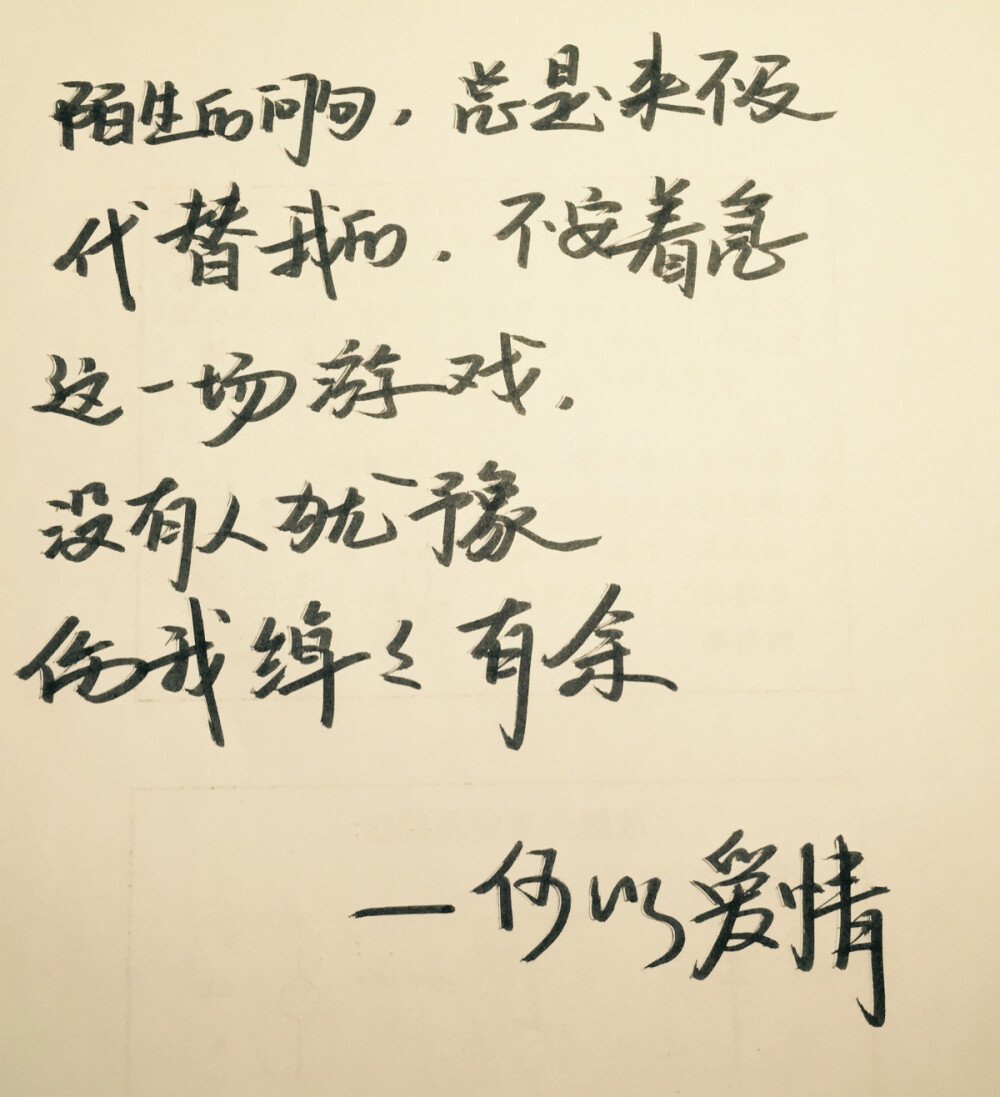 陌生的问句，总是来不及
代替我的．不安着急
这一场游戏．
没有人犹豫
伤我绰々有余
—何以爱情